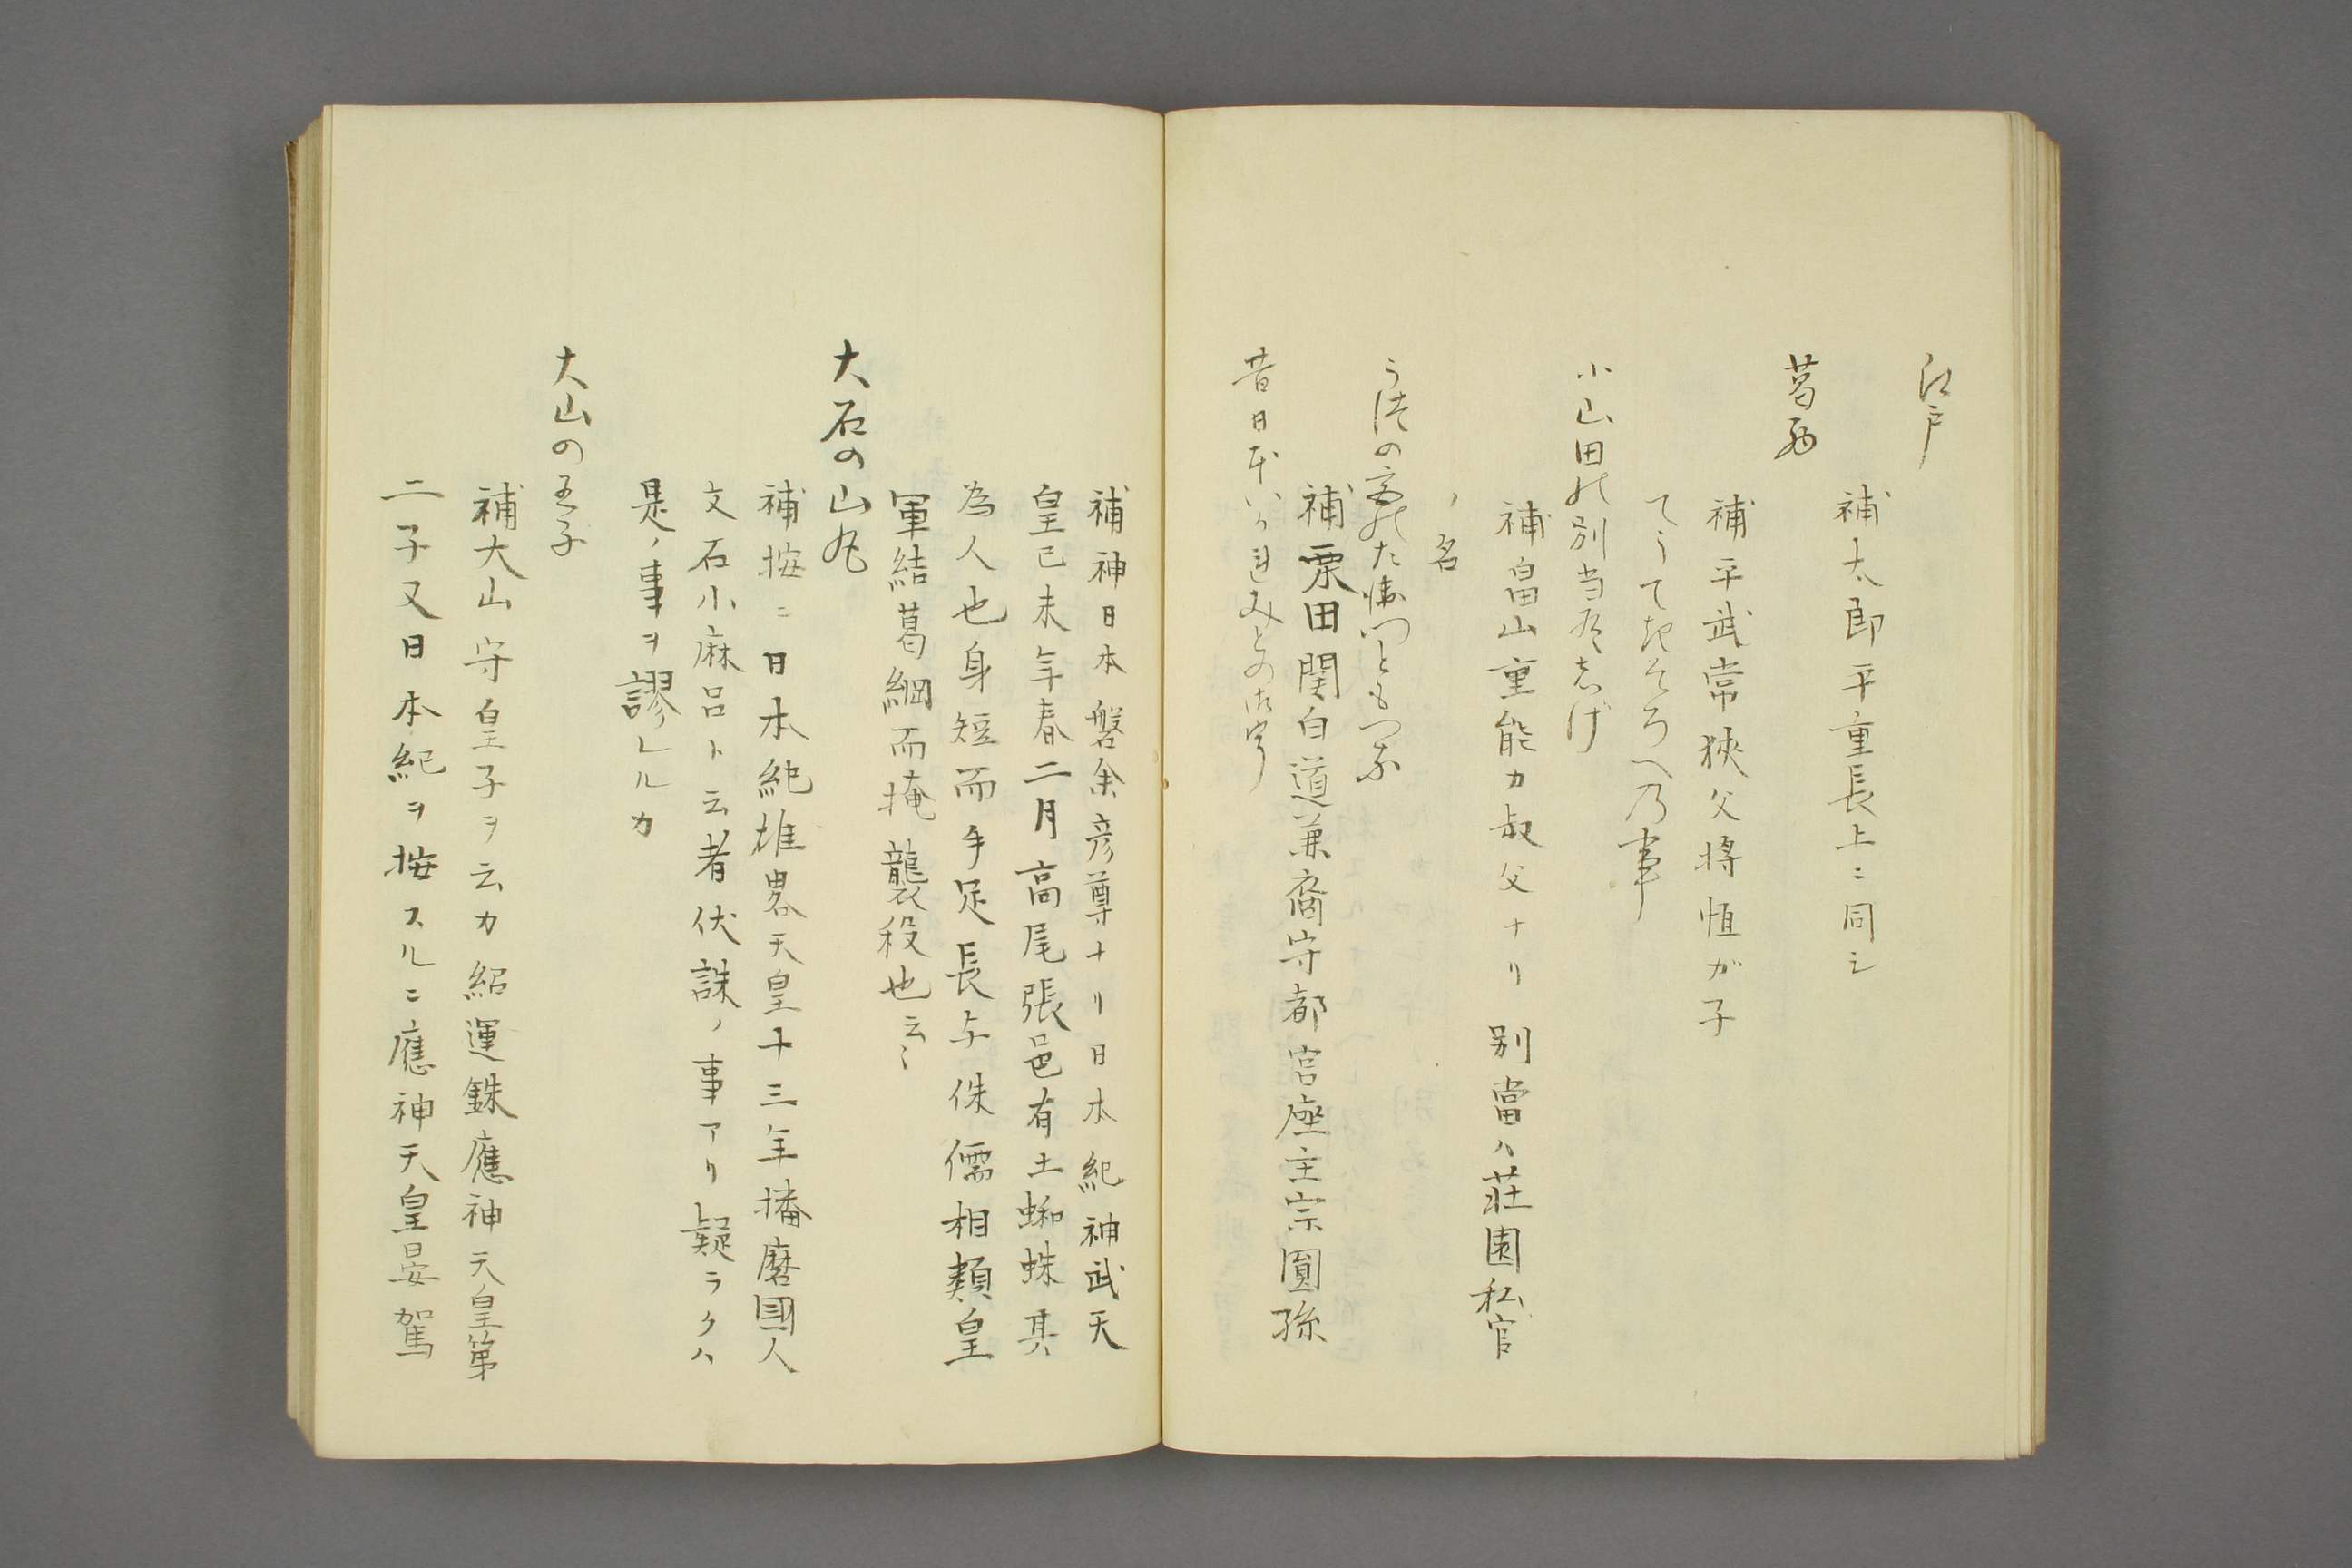 江戸
補太郎平重長上ニ同シ
葛西
補平武常狹父将恒が子
てうてきそろへ乃事
小山田の別当ありしげ
補畠山重能カ叔父ナリ別當ハ荘園私官
ノ名
うつの宮の左衛門ともつな
補粟田関白道兼裔守都宮座主宗圓孫
昔日本いはれみこの御宇
補神日本磐余彦尊ナリ日本紀神武天
皇已未年春二月高尾張邑有土蜘蛛其
為人也身短而手足長与侏儒相類皇
軍結葛綱而掩襲殺也云〻
大石の山丸
補按ニ日本紀雄畧天皇十三年播磨國人
文石小麻呂ト云者伏誅ノ事アリ疑ラクハ
是ノ事ヲ謬レルカ
大山の王子
補大山守皇子ヲ云カ紹運銖應神天皇第
二子又日本紀ヲ按スルニ應神天皇晏駕